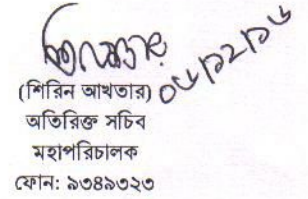 ০৮/১২/১৬
(শিরিন আখতার)
অতিরিক্ত সচিব
মহাপরিচালক
ফোন: ৯৩৪৯৩২৩